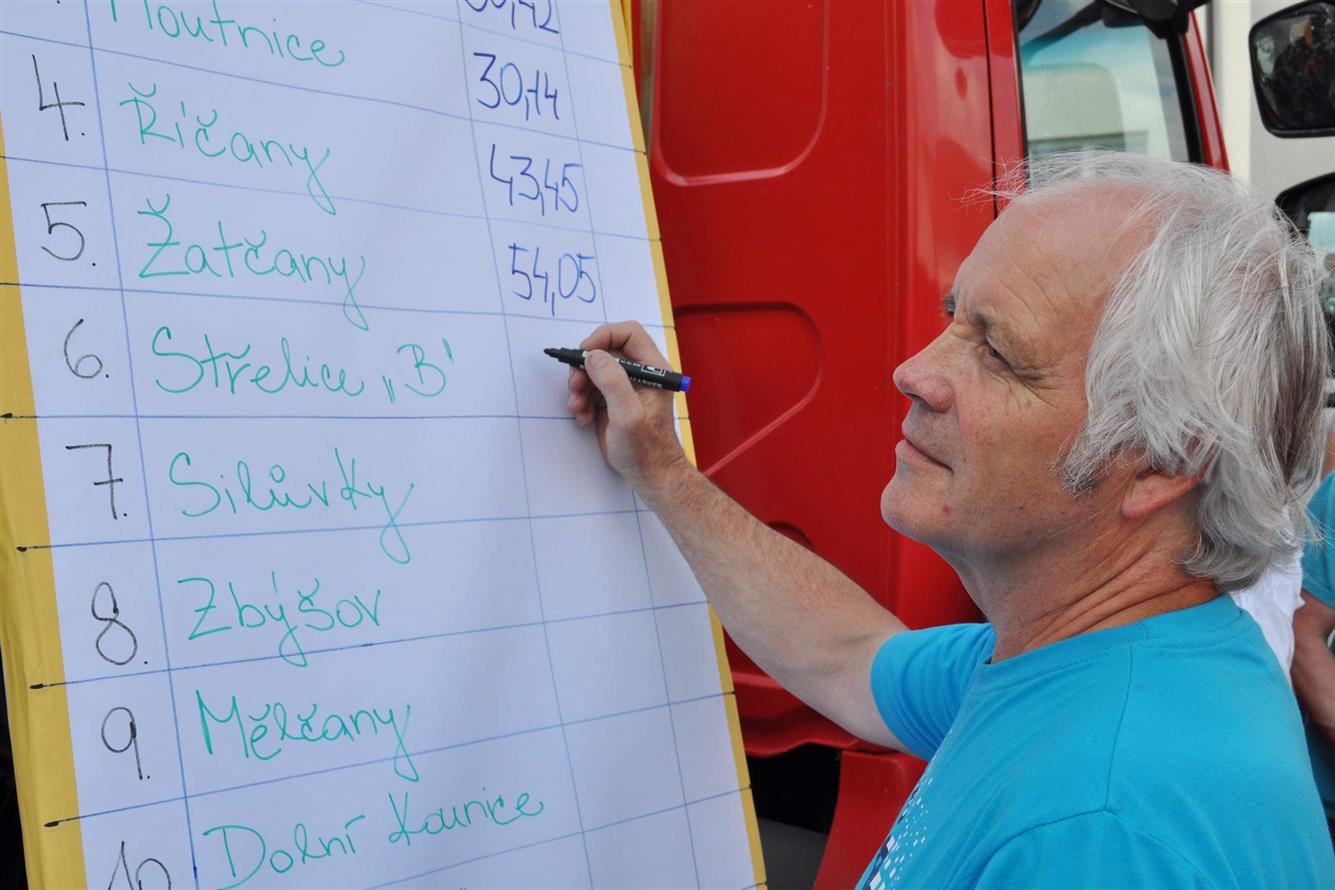 Moutnice 30,14
4. Říčany 43,45
5. Žatčany 54,05
6. Střelice „B"
7. Silůvky
8. Zbýšov
9. Mělčany
10 Dolní Kounice
MARKER